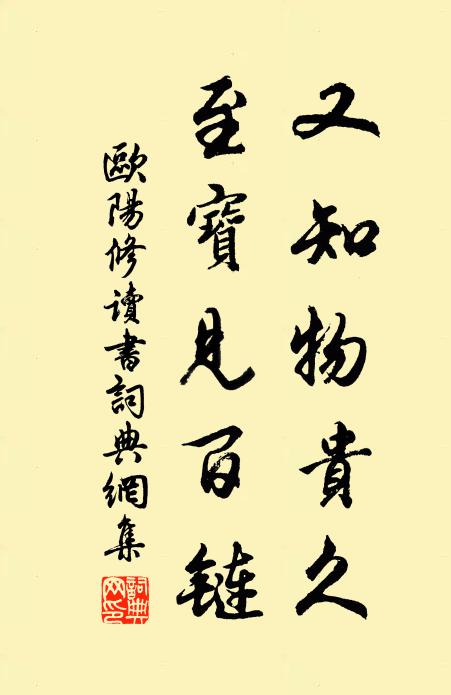 又知物貴久
至寶見百鏈
歐陽修讀書詞典網集
詞典網印